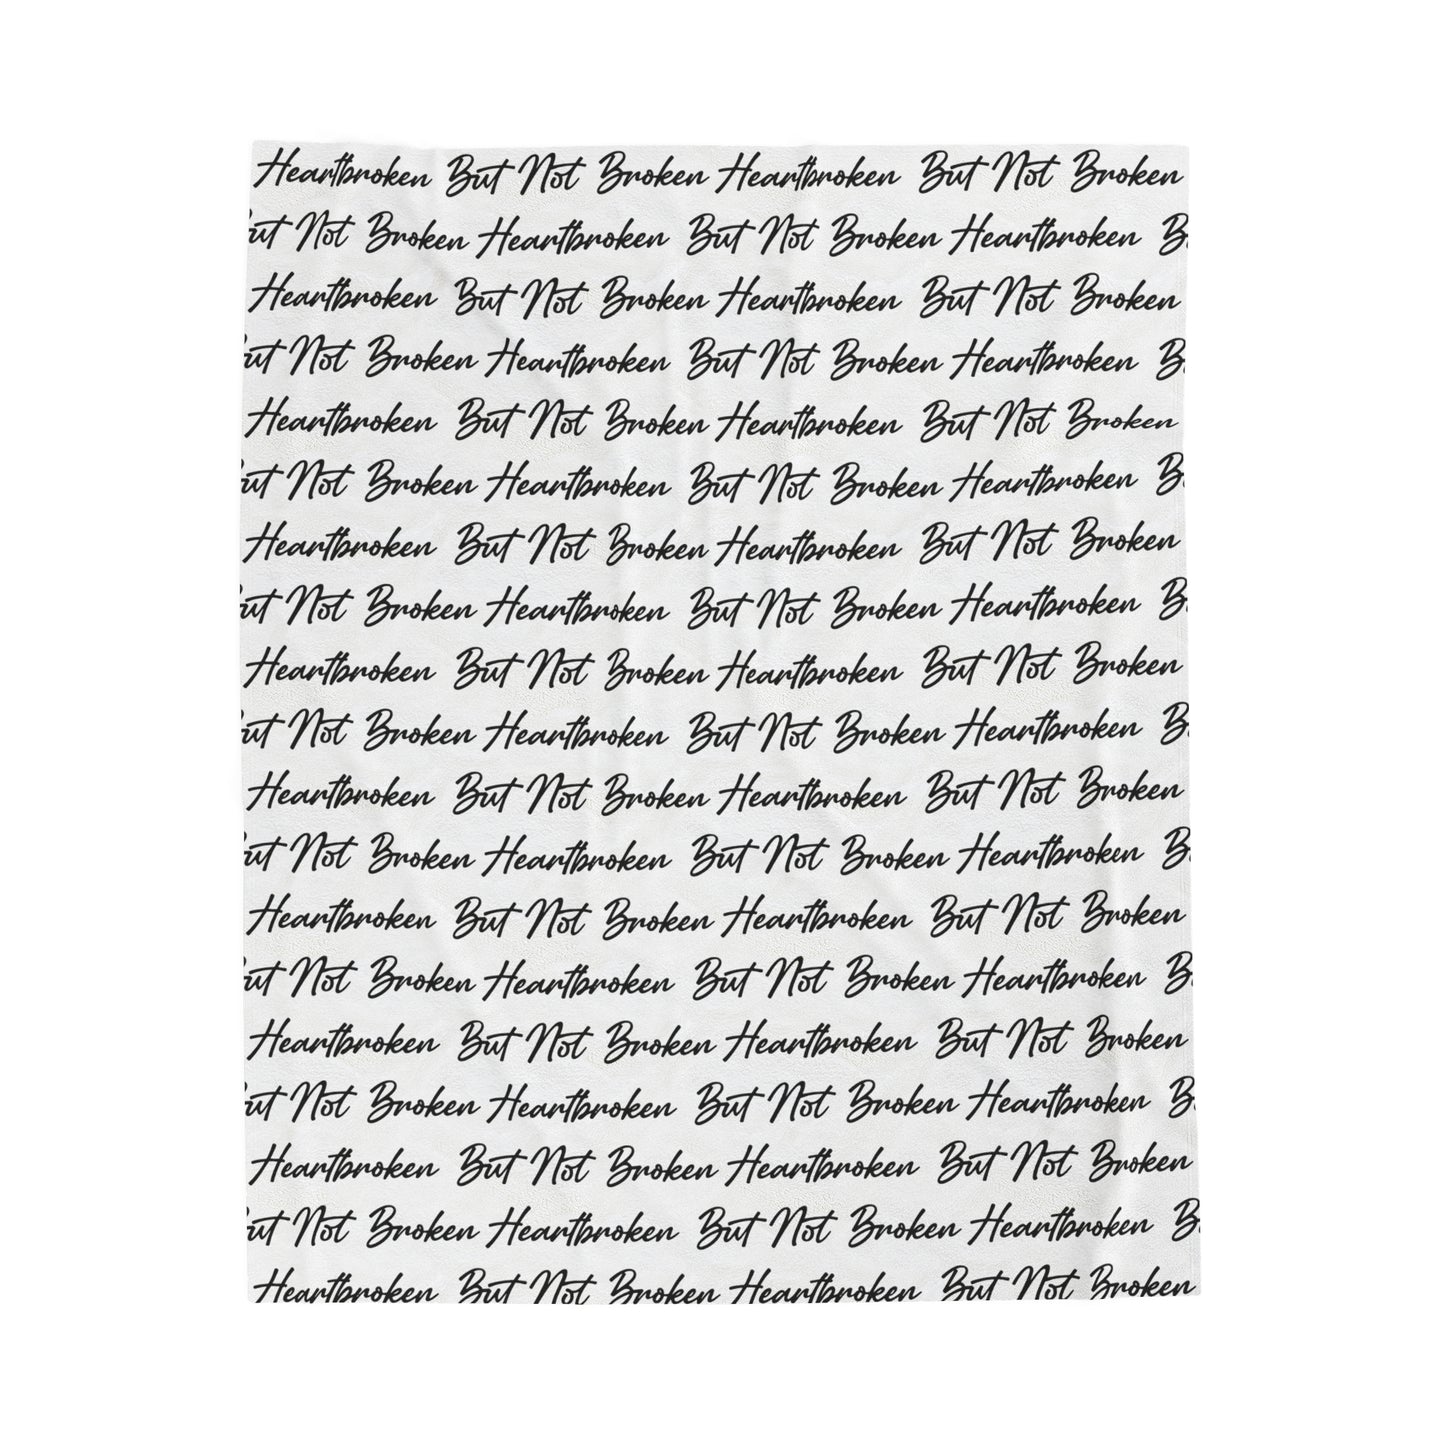 Heartbroken But Not Broken Heartbroken But Not Broken
But Not Broken Heartbroken But Not Broken Heartbroken B
Heartbroken But Not Broken Heartbroken But Not Broken
ut Not Broken Heartbroken But Not Broken Heartbroken B
Heartbroken But Not Broken Heartbroken But Not Broken
ut Not Broken Heartbroken But Not Broken Heartbroken B
Heartbroken But Not Broken Heartbroken But Not Broken
ut Not Broken Heartbroken But Not Broken Heartbroken B
Heartbroken But Not Broken Heartbroken But Not Broken
ut Not Broken Heartbroken But Not Broken Heartbroken B
Heartbroken But Not Broken Heartbroken But Not Broken
ut Not Broken Heartbroken But Not Broken Heartbroken B
Heartbroken But Not Broken Heartbroken But Not Broken
ut Not Broken Heartbroken But Not Broken Heartbroken B
Heartbroken But Not Broken Heartbroken But Not Broken
ut Not Broken Heartbroken But Not Broken Heartbroken B
Heartbroken But Not Broken Heartbroken But Not Broken
ut Not Broken Heartbroken But Not Broken Heartbroken B
Heartbroken But Not Broken Heartbroken But Not Broken